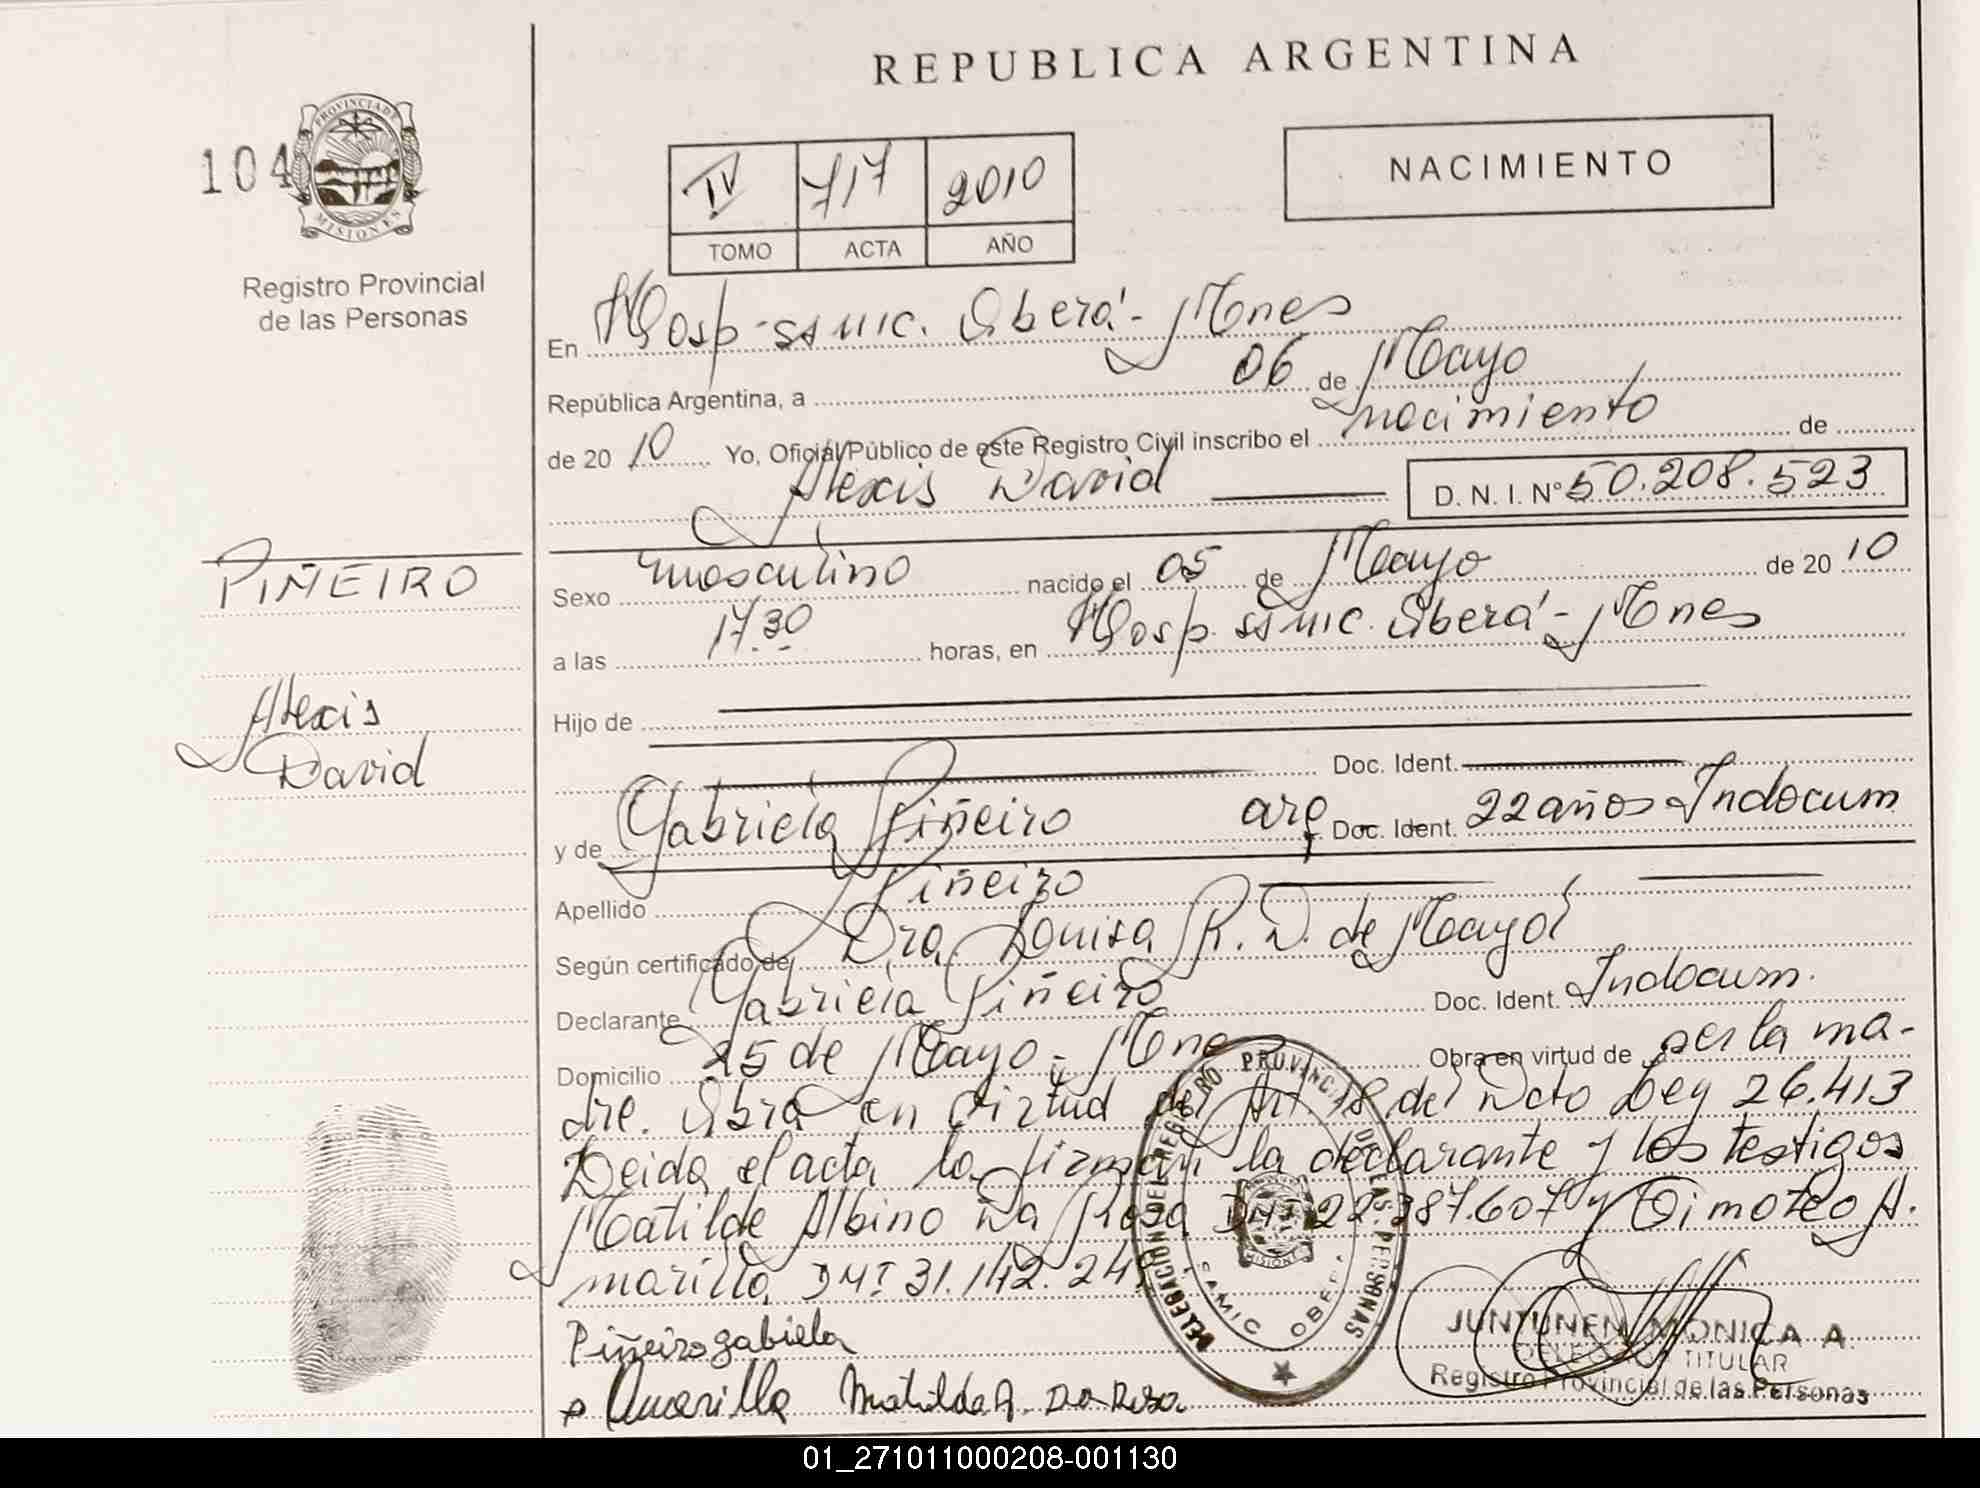 REPUBLICA ARGENTINA
104
PROVINCIA DE
MISIONES
Registro Provincial
de las Personas
IV 717 2010
TOMO ACTA AÑO
NACIMIENTO
En Hosp. SAMIC. Oberá - Mnes
República Argentina, a 06 de Mayo
de 2010 Yo, Oficial Público de este Registro Civil inscribo el nacimiento de
Alexis David D. N. I. Nº 50.208.523
PIÑEIRO
Alexis
David
Sexo masculino nacido el 05 de Mayo de 2010
a las 17.30 horas, en Hosp. SAMIC. Oberá - Mnes
Hijo de
Doc. Ident.
y de Gabriela Piñeiro arg. Doc. Ident. 22 años Indocum
Apellido Piñeiro
Según certificado de Dra Louisa R. D. de Mayol
Declarante Gabriela Piñeiro Doc. Ident. Indocum.
Domicilio 25 de Mayo - Mnes Obra en virtud de ser la ma-
dre. Obra en virtud del Art. 18 del Dcto Ley 26.413
Leida el acta la firman la declarante y los testigos
Matilde Albino Da Rosa DNI 22.387.607 y Timoteo A.
marillo DNI 31.142.24
Piñeiro gabiela
Amarilla Matilda A. DA Rosa
DELEGACION DEL REGISTRO PROVINCIAL DE LAS PERSONAS
MISIONES
SAMIC OBERA
JUNTUNEN MONICA A.
DELEGADA TITULAR
Registro Provincial de las Personas
01_271011000208-001130